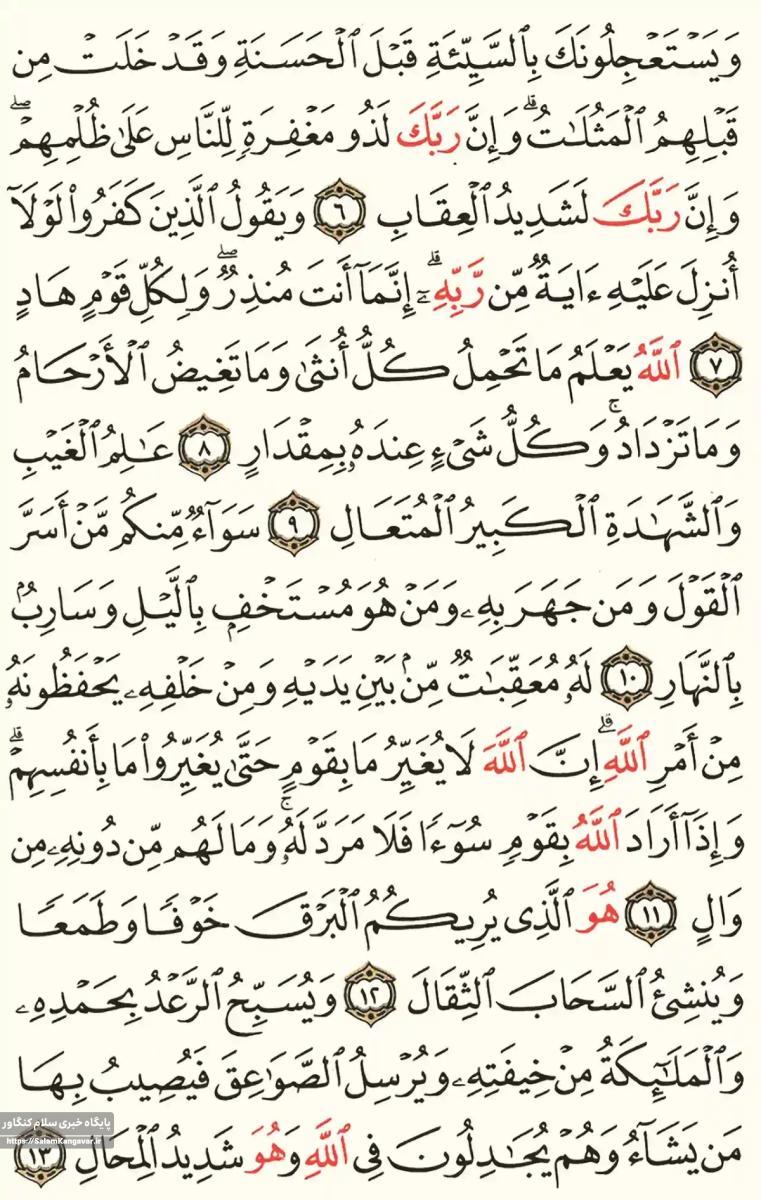 وَيَسْتَعْجِلُونَكَ بِٱلسَّيِّئَةِ قَبْلَ ٱلْحَسَنَةِ وَقَدْ خَلَتْ مِن
قَبْلِهِمُ ٱلْمَثُلَٰتُ ۗ وَإِنَّ رَبَّكَ لَذُو مَغْفِرَةٍ لِّلنَّاسِ عَلَىٰ ظُلْمِهِمْ ۖ
وَإِنَّ رَبَّكَ لَشَدِيدُ ٱلْعِقَابِ ٦ وَيَقُولُ ٱلَّذِينَ كَفَرُوا۟ لَوْلَآ
أُنزِلَ عَلَيْهِ ءَايَةٌ مِّن رَّبِّهِۦٓ ۗ إِنَّمَآ أَنتَ مُنذِرٌ ۖ وَلِكُلِّ قَوْمٍ هَادٍ
٧ ٱللَّهُ يَعْلَمُ مَا تَحْمِلُ كُلُّ أُنثَىٰ وَمَا تَغِيضُ ٱلْأَرْحَامُ
وَمَا تَزْدَادُ ۚ وَكُلُّ شَىْءٍ عِندَهُۥ بِمِقْدَارٍ ٨ عَٰلِمُ ٱلْغَيْبِ
وَٱلشَّهَٰدَةِ ٱلْكَبِيرُ ٱلْمُتَعَالِ ٩ سَوَآءٌ مِّنكُم مَّنْ أَسَرَّ
ٱلْقَوْلَ وَمَن جَهَرَ بِهِۦ وَمَنْ هُوَ مُسْتَخْفٍۭ بِٱلَّيْلِ وَسَارِبٌۢ
بِٱلنَّهَارِ ١٠ لَهُۥ مُعَقِّبَٰتٌ مِّنۢ بَيْنِ يَدَيْهِ وَمِنْ خَلْفِهِۦ يَحْفَظُونَهُۥ
مِنْ أَمْرِ ٱللَّهِ ۗ إِنَّ ٱللَّهَ لَا يُغَيِّرُ مَا بِقَوْمٍ حَتَّىٰ يُغَيِّرُوا۟ مَا بِأَنفُسِهِمْ ۗ
وَإِذَآ أَرَادَ ٱللَّهُ بِقَوْمٍ سُوٓءًا فَلَا مَرَدَّ لَهُۥ ۚ وَمَا لَهُم مِّن دُونِهِۦ مِن
وَالٍ ١١ هُوَ ٱلَّذِى يُرِيكُمُ ٱلْبَرْقَ خَوْفًا وَطَمَعًا
وَيُنشِئُ ٱلسَّحَابَ ٱلثِّقَالَ ١٢ وَيُسَبِّحُ ٱلرَّعْدُ بِحَمْدِهِۦ
وَٱلْمَلَٰٓئِكَةُ مِنْ خِيفَتِهِۦ وَيُرْسِلُ ٱلصَّوَٰعِقَ فَيُصِيبُ بِهَا
مَن يَشَآءُ وَهُمْ يُجَٰدِلُونَ فِى ٱللَّهِ وَهُوَ شَدِيدُ ٱلْمِحَالِ ١٣
پایگاه خبری سلام کنگاور
https://SalamKangavar.ir